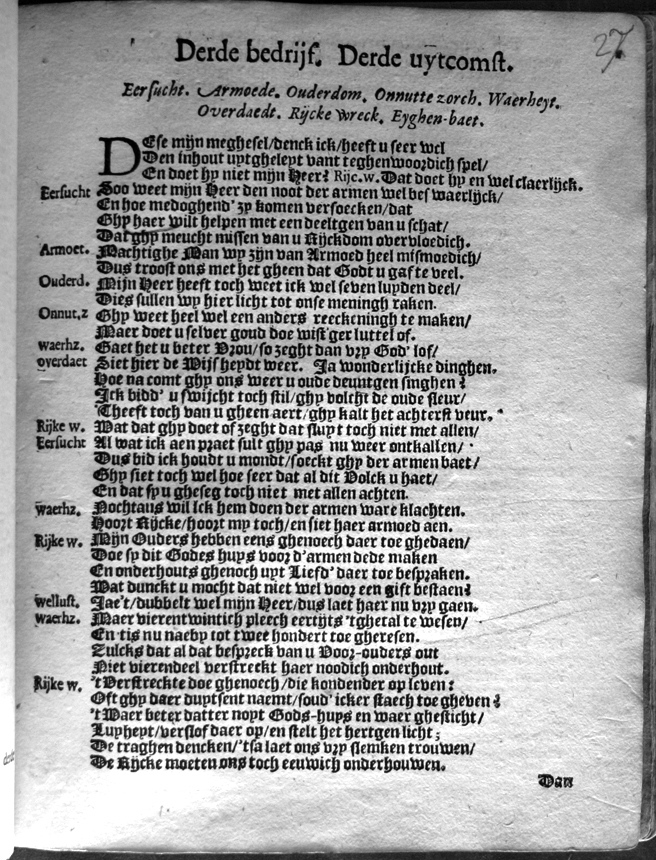 27.
Derde bedrijf. Derde uytcomst.
Eersucht. Armoede. Ouderdom. Onnutte zorch. Waerheyt.
Overdaedt. Rijcke wreck. Eyghen-baet.
DEse mijn meghesel/denck ick/heeft u seer wel
Den inhout uytgheleyt vant teghenwoordich spel/
En doet hy niet mijn Heer? Rijc.w. Dat doet hy en wel claerlijck.
Eersucht Soo weet mijn Heer den noot der armen wel beswaerlijck/
En hoe medoghend' zy komen versoecken/dat
Ghy haer wilt helpen met een deeltgen van u schat/
Dat ghy meucht missen van u Rijckdom overvloedich.
Armoet. Machtighe Man wy zijn van Armoed heel mismoedich/
Dus troost ons met het gheen dat Godt u gaf te veel.
Ouderd. Mijn Heer heeft toch weet ick wel seven luyden deel/
Dies sullen wy hier licht tot onse meningh raken.
Onnut.z Ghy weet heel wel een anders reeckeningh te maken/
Maer doet u selver goud doe wist'ger luttel of.
waerhz. Gaet het u beter Vrou/so zeght dan vry God' lof/
overdaet Siet hier de Wijsheydt weer. Ja wonderlijcke dinghen.
Hoe na comt ghy ons weer u oude deuntgen singhen?
Ick bidd' u swijcht toch stil/ghy volcht de oude sleur/
Theeft toch van u gheen aert/ghy kalt het achterst veur.
Rijke w. Wat dat ghy doet of zeght dat sluyt toch niet met allen/
Eersucht Al wat ick aen praet sult ghy pas nu weer ontkallen/
Dus bid ick houdt u mondt/soeckt ghy der armen baet/
Ghy siet toch wel hoe seer dat al dit Volck u haet/
En dat sy u gheseg toch niet met allen achten.
waerhz. Nochtans wil Ick hem doen der armen ware klachten.
Hoort Rijcke/hoort my toch/en siet haer armoed aen.
Rijke w. Mijn Ouders hebben eens ghenoech daer toe ghedaen/
Doe sy dit Godes huys voor d'armen dede maken
En onderhouts ghenoch uyt Liefd' daer toe bespraken.
Wat dunckt u mocht dat niet wel voor een gift bestaen?
wellust. Jae't/dubbelt wel mijn Heer/dus laet haer nu vry gaen.
waerhz. Maer vierentwintich pleech eertijts 'tghetal te wesen/
En tis nu naeby tot twee hondert toe gheresen.
Zulcks dat al dat bespreck van u Voor-ouders out
Niet vierendeel verstreckt haer noodich onderhout.
Rijke w. 't Verstreckte doe ghenoech/die konden der op leven:
Oft ghy daer duysent naemt/soud' icker staech toe gheven?
't Waer beter datter noyt Gods-huys en waer ghesticht/
Luyheyt/verslof daer op/en stelt het hertgen licht;
De traghen dencken/'tsa laet ons vry slemken trouwen/
De Rijcke moeten ons toch eeuwich onderhouwen.
Dan